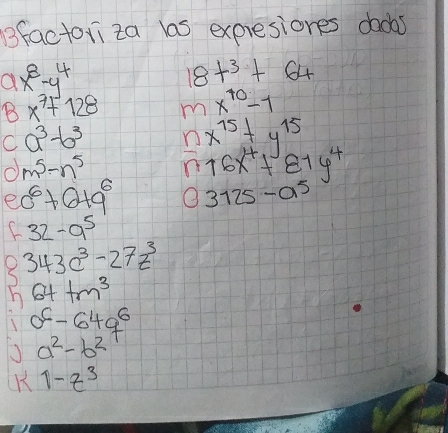 13 factoriza las expresiones dadas
a x⁸-y⁴
B x⁷+128
c a³-b³
d m⁵-n⁵
f 32-a⁵
g 343c³-27z³
h 64+m³
i a⁶-64q⁶
J a²-b²
K 1-z³
l 8t³+64
m x¹⁰-1
n x¹⁵+y¹⁵
ñ 16x⁴+81y⁴
O 3125-a⁵